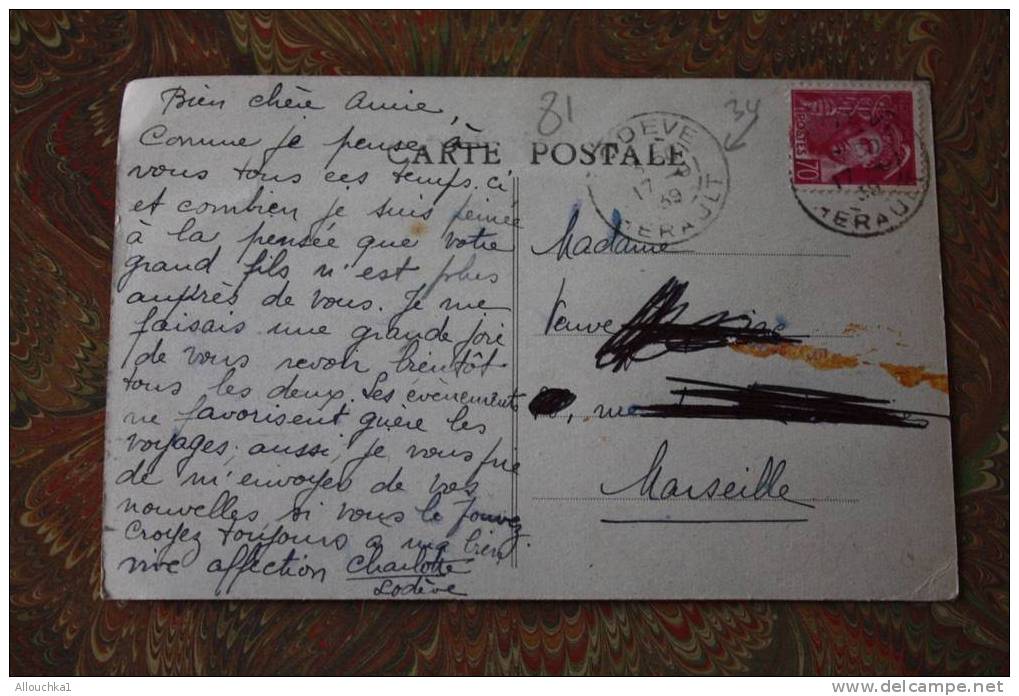 Bien chère Amie,
Comme je pense à
vous tous ces temps-ci
et combien je suis peinée
à la pensée que votre
grand fils n'est plus
auprès de vous. Je me
faisais une grande joie
de vous revoir bientôt
tous les deux. Les évènements
ne favorisent guère les
voyages; aussi, je vous prie
de m'envoyer de vos
nouvelles si vous le pouvez.
Croyez toujours à ma bien
vive affection Charlotte
Lodève
81
34
CARTE POSTALE
LODEVE
17 39
HERAULT
POSTES
70
17 39
HERAULT
Madame
Veuve
, rue
Marseille
Allouchka1
www.delcampe.net